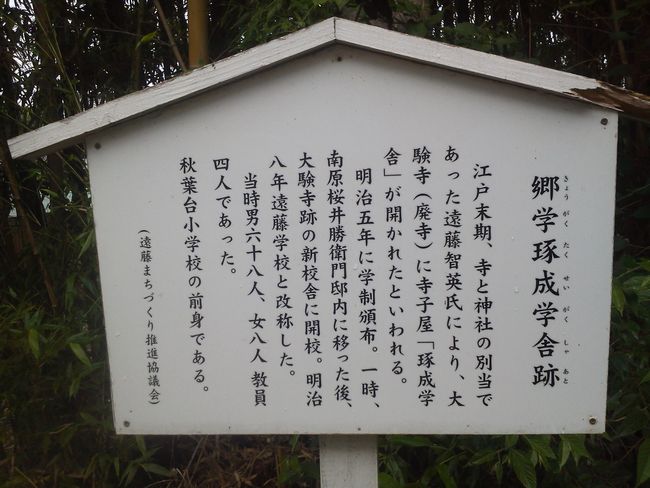 郷学琢成学舎跡
きょうがくたくせいがくしゃあと
江戸末期、寺と神社の別当で
あった遠藤智英氏により、大
験寺（廃寺）に寺子屋「琢成学
舎」が開かれたといわれる。
明治五年に学制頒布。一時、
南原桜井勝衛門邸内に移った後、
大験寺跡の新校舎に開校。明治
八年遠藤学校と改称した。
当時男六十八人、女八人 教員
四人であった。
秋葉台小学校の前身である。
（遠藤まちづくり推進協議会）